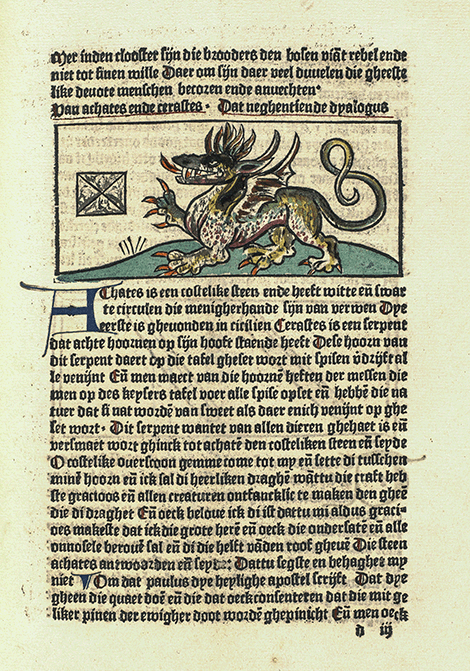 Mer inden clooster sijn die brooders den bosen viãt rebel ende
niet tot sinen wille Daer om sijn daer veel duvelen die gheeste
like devote menschen becozen ende anvechten·
Van achates ende cerastes· Dat neghentiende dyalogus
AChates is een costelike steen ende heeft witte eñ swar
te circulen die menigherhande sijn van verwen Dye
eerste is ghevonden in cicilien Cerastes is een serpent
dat achte hoornen op sijn hooft staende heeft Dese hoorn van
dit serpent daert op die tafel gheset wort mit spisen v̄drijft al
le venijnt Eñ men maect van die hoornē heften der messen die
men op des keysers tafel voer alle spise opset eñ hebbē die na
tuer dat si nat wordē van sweet als daer enich venijnt op ghe
set wort· Dit serpent wantet van allen dieren ghehaet is eñ
versmaet wort ghinck tot achatē den costeliken steen eñ seyde
O costelike overscoon gemme come tot my eñ sette di tusschen
minē hoorn eñ ick sal di heerliken draghē wāttu die craft heb
ste gracioos eñ allen creaturen ontfancklic te maken den gheē
die di draghet Eñ oeck belove ick di ist dattu mi aldus graci-
oes makeste dat ick die grote herē eñ oeck die ondersatē eñ alle
onnosele berovē sal eñ di die helft vāden roof ghevē Die steen
achates antwoorden eñ seyt: Dattu segste en behaghet my
niet Om dat paulus dye heylighe apostel scrijft Dat dye
gheen die quaet doē eñ die dat oeck consenteren dat die mit ge
liker pinen der ewigher doot wordē ghepinicht Eñ men oeck
d iij